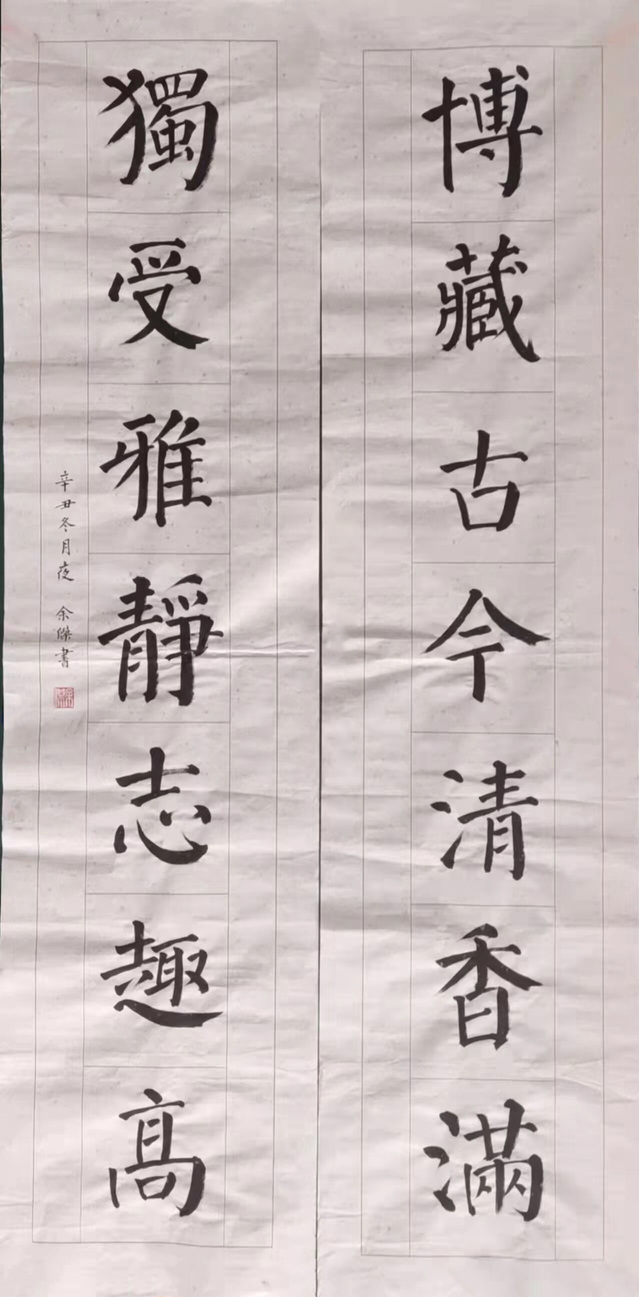 博藏古今清香滿
獨受雅靜志趣高
辛丑冬月夜 余傑書